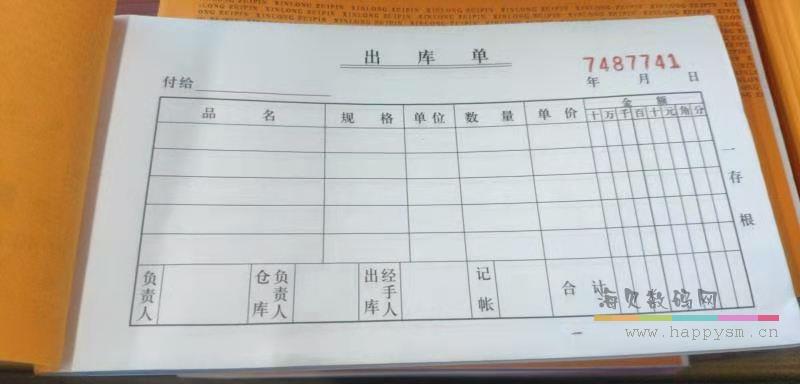 XINLONG BEIPIN XINLONG BEIPIN XINLONG BEIPIN XINLONG BEIPIN
出库单
7487741
付给
年 月 日
品名 规格 单位 数量 单价 金额
十 万 千 百 十 元 角 分
一存根
负责人 仓库负责人 出库经手人 记帐 合计
海贝数码网
www.happysm.cn